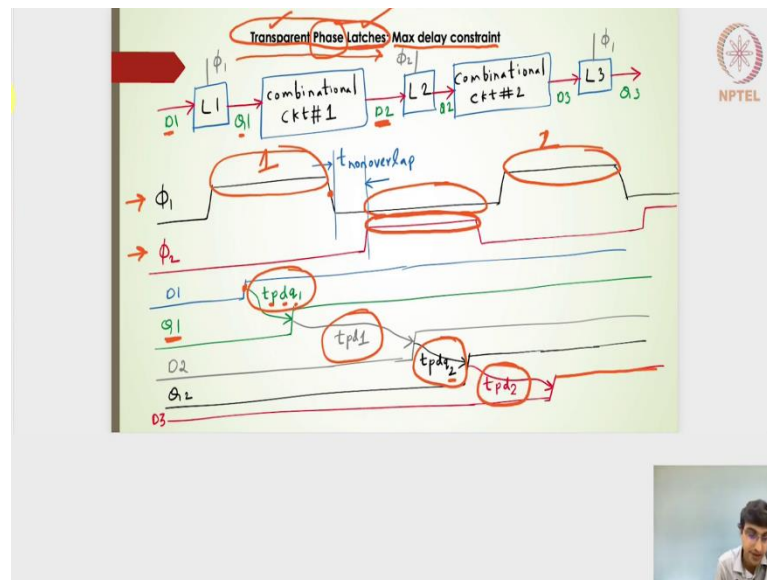 Transparent Phase Latches: Max delay constraint
ϕ₁ ϕ₂ ϕ₁
L1 combinational ckt#1 L2 combinational ckt#2 L3
D1 Q1 D2 Q2 D3 Q3
NPTEL
1 t nonoverlap 2
ϕ₁
ϕ₂
D1 tpdq₁
Q1 tpd1
D2 tpdq₂
Q2 tpd₂
D3